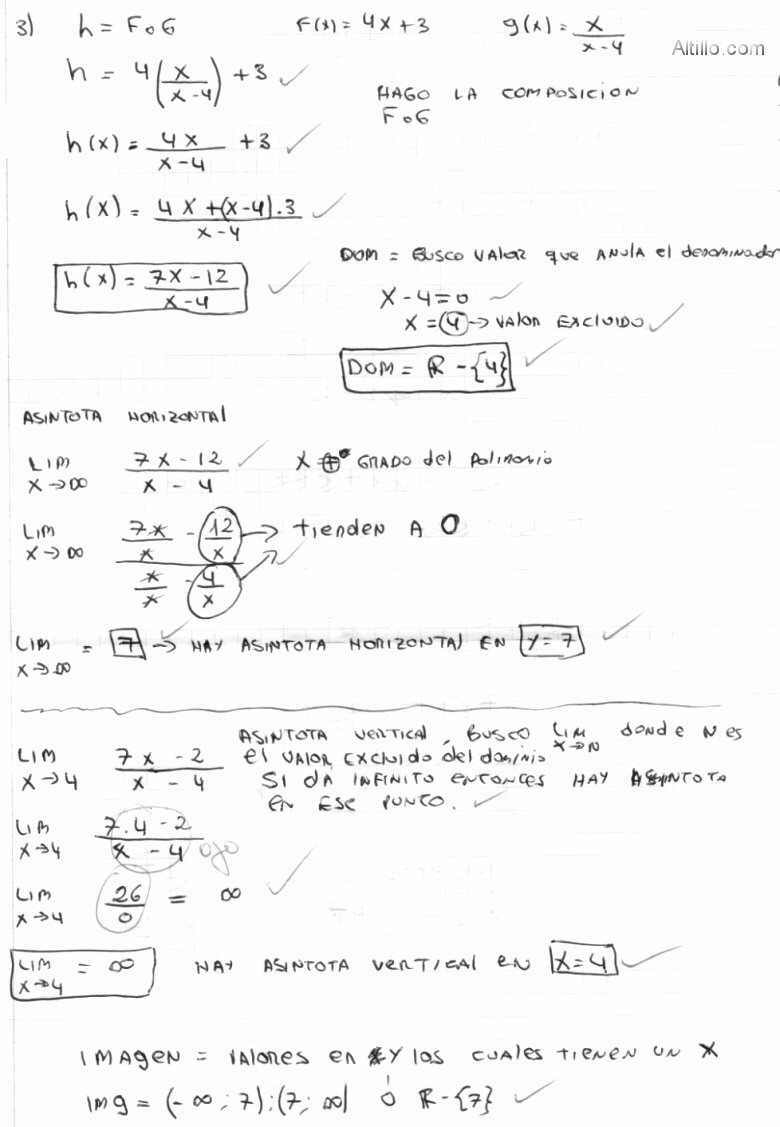 3) h = F∘G F(x) = 4x+3 g(x) = x/(x-4)
Altillo.com
h = 4(x/(x-4)) + 3 ✓
HAGO LA COMPOSICION
F∘G
h(x) = 4x/(x-4) + 3 ✓
h(x) = (4x+(x-4).3)/(x-4) ✓
h(x) = (7x-12)/(x-4) ✓
DOM = BUSCO VALOR que ANULA el denominador
x-4=0
x = 4 → VALOR EXCLUIDO ✓
DOM = R - {4} ✓
ASINTOTA HORIZONTAL
LIM x→∞ (7x-12)/(x-4) ✓ x GRADO del Polinomio
LIM x→∞ (7x/x - 12/x)/(x/x - 4/x) → tienden A 0 ✓
LIM x→∞ = 7 → HAY ASINTOTA HORIZONTAL EN Y=7 ✓
ASINTOTA VERTICAL, BUSCO LIM x→N donde N es
el VALOR EXCLUIDO del dominio
LIM x→4 (7x-2)/(x-4)
SI dA INFINITO ENTONCES HAY ASINTOTA
EN ESE PUNTO. ✓
LIM x→4 (7.4-2)/(x-4) ojo
LIM x→4 26/0 = ∞ ✓
LIM x→4 = ∞ HAY ASINTOTA VERTICAL EN X=4 ✓
IMAGEN = VALORES en Y los CUALES TIENEN UN X
Img = (-∞; 7);(7; ∞) ó R-{7} ✓